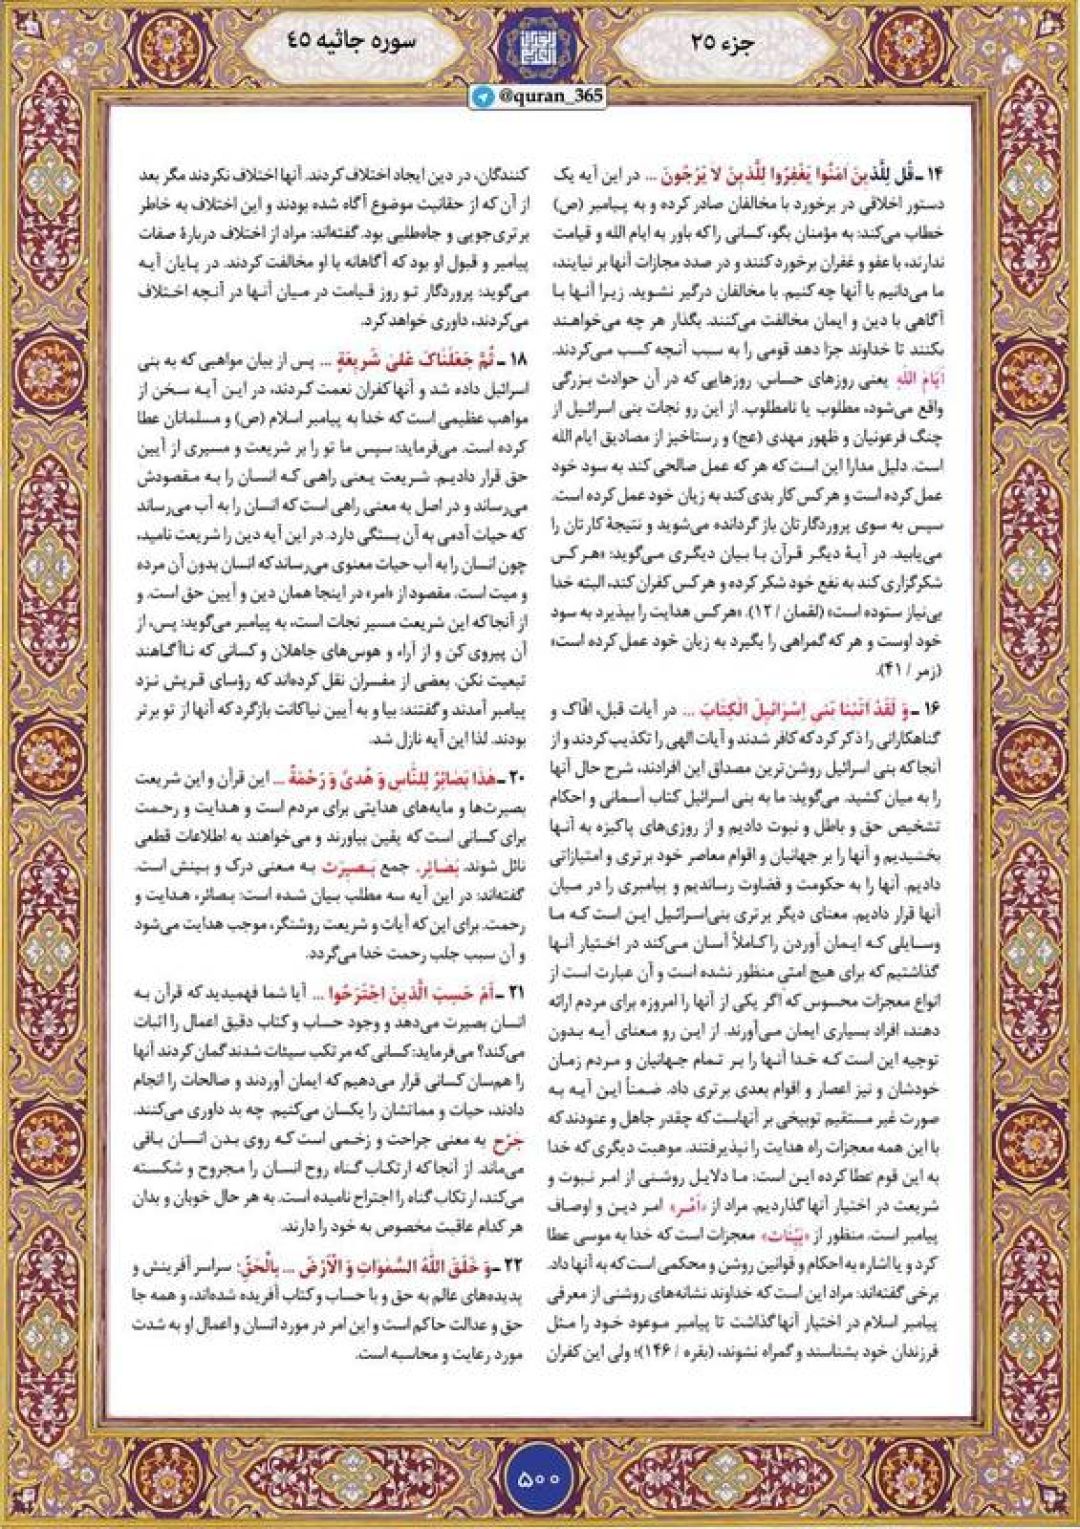 جزء ۲۵
سوره جاثیه ۴۵
@quran_365
۱۴ ـ قُل لِلَّذینَ امَنُوا یَغْفِرُوا لِلَّذینَ لاَ یَرْجُونَ ... در این آیه یک
دستور اخلاقی در برخورد با مخالفان صادر کرده و به پیامبر (ص)
خطاب می‌کند: به مؤمنان بگو، کسانی را که باور به ایام الله و قیامت
ندارند، با عفو و غفران برخورد کنند و در صدد مجازات آنها بر نیایند،
ما می‌دانیم با آنها چه کنیم. با مخالفان درگیر نشوید. زیرا آنها بـا
آگاهی با دین و ایمان مخالفت می‌کنند. بگذار هر چه می‌خواهـند
بکنند تا خداوند جزا دهد قومی را به سبب آنچه کسب می‌کردند.
اَیّامَ اللّهِ یعنی روزهای حساس. روزهایی که در آن حوادث بزرگی
واقع می‌شود، مطلوب یا نامطلوب. از این رو نجات بنی اسرائیل از
چنگ فرعونیان و ظهور مهدی (عج) و رستاخیز از مصادیق ایام الله
است. دلیل مدارا این است که هر که عمل صالحی کند به سود خود
عمل کرده است و هر کس کار بدی کند به زیان خود عمل کرده است.
سپس به سوی پروردگارتان باز گردانده می‌شوید و نتیجهٔ کارتان را
می‌یابید. در آیهٔ دیگر قرآن بـا بیان دیگری می‌گوید: «هـر کس
شکرگزاری کند به نفع خود شکر کرده و هر کس کفران کند، البته خدا
بی‌نیاز ستوده است» (لقمان / ۱۲). «هر کس هدایت را بپذیرد به سود
خود اوست و هر که گمراهی را بگیرد به زیان خود عمل کرده است»
(زمر / ۴۱).
۱۶ ـ وَ لَقَدْ اتَیْنا بَنی اِسْرائیلَ الْکِتابَ ... در آیات قبل، افّاک و
گناهکارانی را ذکر کرد که کافر شدند و آیات الهی را تکذیب کردند و از
آنجا که بنی اسرائیل روشن‌ترین مصداق این افرادند، شرح حال آنها
را به میان کشید. می‌گوید: ما به بنی اسرائیل کتاب آسمانی و احکام
تشخیص حق و باطل و نبوت دادیم و از روزی‌های پاکیزه به آنـها
بخشیدیم و آنها را بر جهانیان و اقوام معاصر خود برتری و امتیازاتی
دادیم. آنها را به حکومت و قضاوت رساندیم و پیامبری را در میان
آنها قرار دادیم. معنای دیگر برتری بنی‌اسرائیل ایـن است کـه مـا
وسـایلی کـه ایـمان آوردن را کـاملاً آسان می‌کند در اختیار آنـها
گذاشتیم که برای هیچ امتی منظور نشده است و آن عبارت است از
انواع معجزات محسوس که اگر یکی از آنها را امروزه برای مردم ارائه
دهند، افراد بسیاری ایمان می‌آورند. از این رو معنای آیـه بدون
توجیه این است کـه خـدا آنـها را بـر تـمام جـهانیان و مـردم زمـان
خودشان و نیز اعصار و اقوام بعدی برتری داد. ضمناً این آیـه بـه
صورت غیر مستقیم توبیخی بر آنهاست که چقدر جاهل و عنودند که
با این همه معجزات راه هدایت را نپذیرفتند. موهبت دیگری که خدا
به این قوم عطا کرده ایـن است: مـا دلایـل روشـنی از امـر نـبوت و
شریعت در اختیار آنها گذاردیم. مراد از «اَمْـر» امـر دیـن و اوصـاف
پیامبر است. منظور از «بَیِّنات» معجزات است که خدا به موسی عطا
کرد و یا اشاره به احکام و قوانین روشن و محکمی است که به آنها داد.
برخی گفته‌اند: مراد این است که خداوند نشانه‌های روشنی از معرفی
پیامبر اسلام در اختیار آنها گذاشت تا پیامبر موعود خود را مـثل
فرزندان خود بشناسند و گمراه نشوند، (بقره / ۱۴۶)؛ ولی این کفران
کنندگان، در دین ایجاد اختلاف کردند. آنها اختلاف نکردند مگر بعد
از آن که از حقانیت موضوع آگاه شده بودند و این اختلاف به خاطر
برتری‌جویی و جاه‌طلبی بود. گفته‌اند: مراد از اختلاف دربارهٔ صفات
پیامبر و قبول او بود که آگاهانه با او مخالفت کردند. در پایان آیـه
می‌گوید: پروردگار تـو روز قیامت در مـیان آنـها در آنـچه اخـتلاف
می‌کردند، داوری خواهد کرد.
۱۸ ـ ثُمَّ جَعَلْناکَ عَلیٰ شَریعَةٍ ... پس از بیان مواهبی که به بنی
اسرائیل داده شد و آنها کفران نعمت کردند، در ایـن آیـه سخن از
مواهب عظیمی است که خدا به پیامبر اسلام (ص) و مسلمانان عطا
کرده است. می‌فرماید: سپس ما تو را بر شریعت و مسیری از آیین
حق قرار دادیـم. شـریعت یـعنی راهـی کـه انسـان را بـه مـقصودش
می‌رساند و در اصل به معنی راهی است که انسان را به آب می‌رساند
که حیات آدمی به آن بستگی دارد. در این آیه دین را شریعت نامید،
چون انسان را به آب حیات معنوی می‌رساند که انسان بدون آن مرده
و میت است. مقصود از «امر» در اینجا همان دین و آیین حق است. و
از آنجا که این شریعت مسیر نجات است، به پیامبر می‌گوید: پس، از
آن پیروی کن و از آراء و هوس‌های جاهلان و کسانی که ناآگـاهند
تبعیت نکن. بعضی از مفسران نقل کرده‌اند که رؤسای قریش نـزد
پیامبر آمدند و گفتند: بیا و به آیین نیاکانت بازگرد که آنها از تو برتر
بودند. لذا این آیه نازل شد.
۲۰ ـ هٰذا بَصائِرُ لِلنّاسِ وَ هُدیً وَ رَحْمَةٌ ... این قرآن و این شریعت
بصیرت‌ها و مایه‌های هدایتی برای مردم است و هدایت و رحـمت
برای کسانی است که یقین بیاورند و می‌خواهند به اطلاعات قطعی
نائل شوند. بَصائِر، جمع بَـصیرَت بـه مـعنی درک و بـینش است.
گفته‌اند: در این آیه سه مطلب بیان شده است: بـصائر، هدایت و
رحمت. برای این که آیات و شریعت روشنگر، موجب هدایت می‌شود
و آن سبب جلب رحمت خدا می‌گردد.
۲۱ ـ اَمْ حَسِبَ الَّذینَ اجْتَرَحُوا ... آیا شما فهمیدید که قرآن بـه
انسان بصیرت می‌دهد و وجود حساب و کتاب دقیق اعمال را اثبات
می‌کند؟ می‌فرماید: کسانی که مرتکب سیئات شدند گمان کردند آنها
را همسان کسانی قرار می‌دهیم که ایمان آوردند و صالحات را انجام
دادند، حیات و مماتشان را یکسان می‌کنیم. چه بد داوری می‌کنند.
جَرْح به معنی جراحت و زخمی است کـه روی بـدن انسـان بـاقی
می‌ماند. از آنجا که ارتکاب گناه روح انسان را مجروح و شکسته
می‌کند، ارتکاب گناه را اجتراح نامیده است. به هر حال خوبان و بدان
هر کدام عاقبت مخصوص به خود را دارند.
۲۲ ـ وَ خَلَقَ اللّهُ السَّمٰواتِ وَ الْاَرْضَ ... بِالْحَقِّ؛ سراسر آفرینش و
پدیده‌های عالم به حق و با حساب و کتاب آفریده شده‌اند، و همه جا
حق و عدالت حاکم است و این امر در مورد انسان و اعمال او به شدت
مورد رعایت و محاسبه است.
۵۰۰